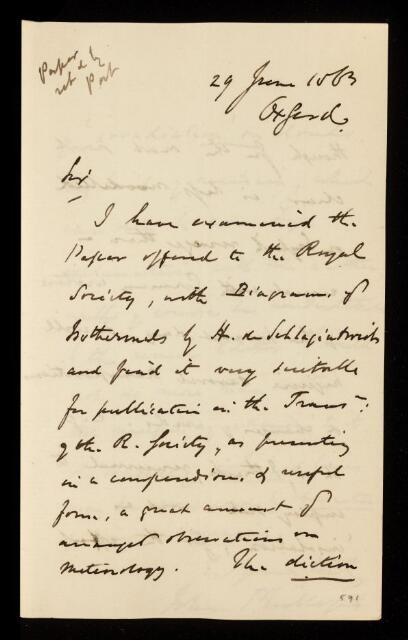 Paper
ret d by
Post
29 June 1863
Oxford.
Sir
I have examined the
Paper offered to the Royal
Society, with Diagrams of
Isothermals by H. de Schlagintweit
and find it very suitable
for publication in the Transns:
of the R. Society, as presenting
in a compendious & useful
form, a great amount of
arranged observations on
meteorology. The diction
591